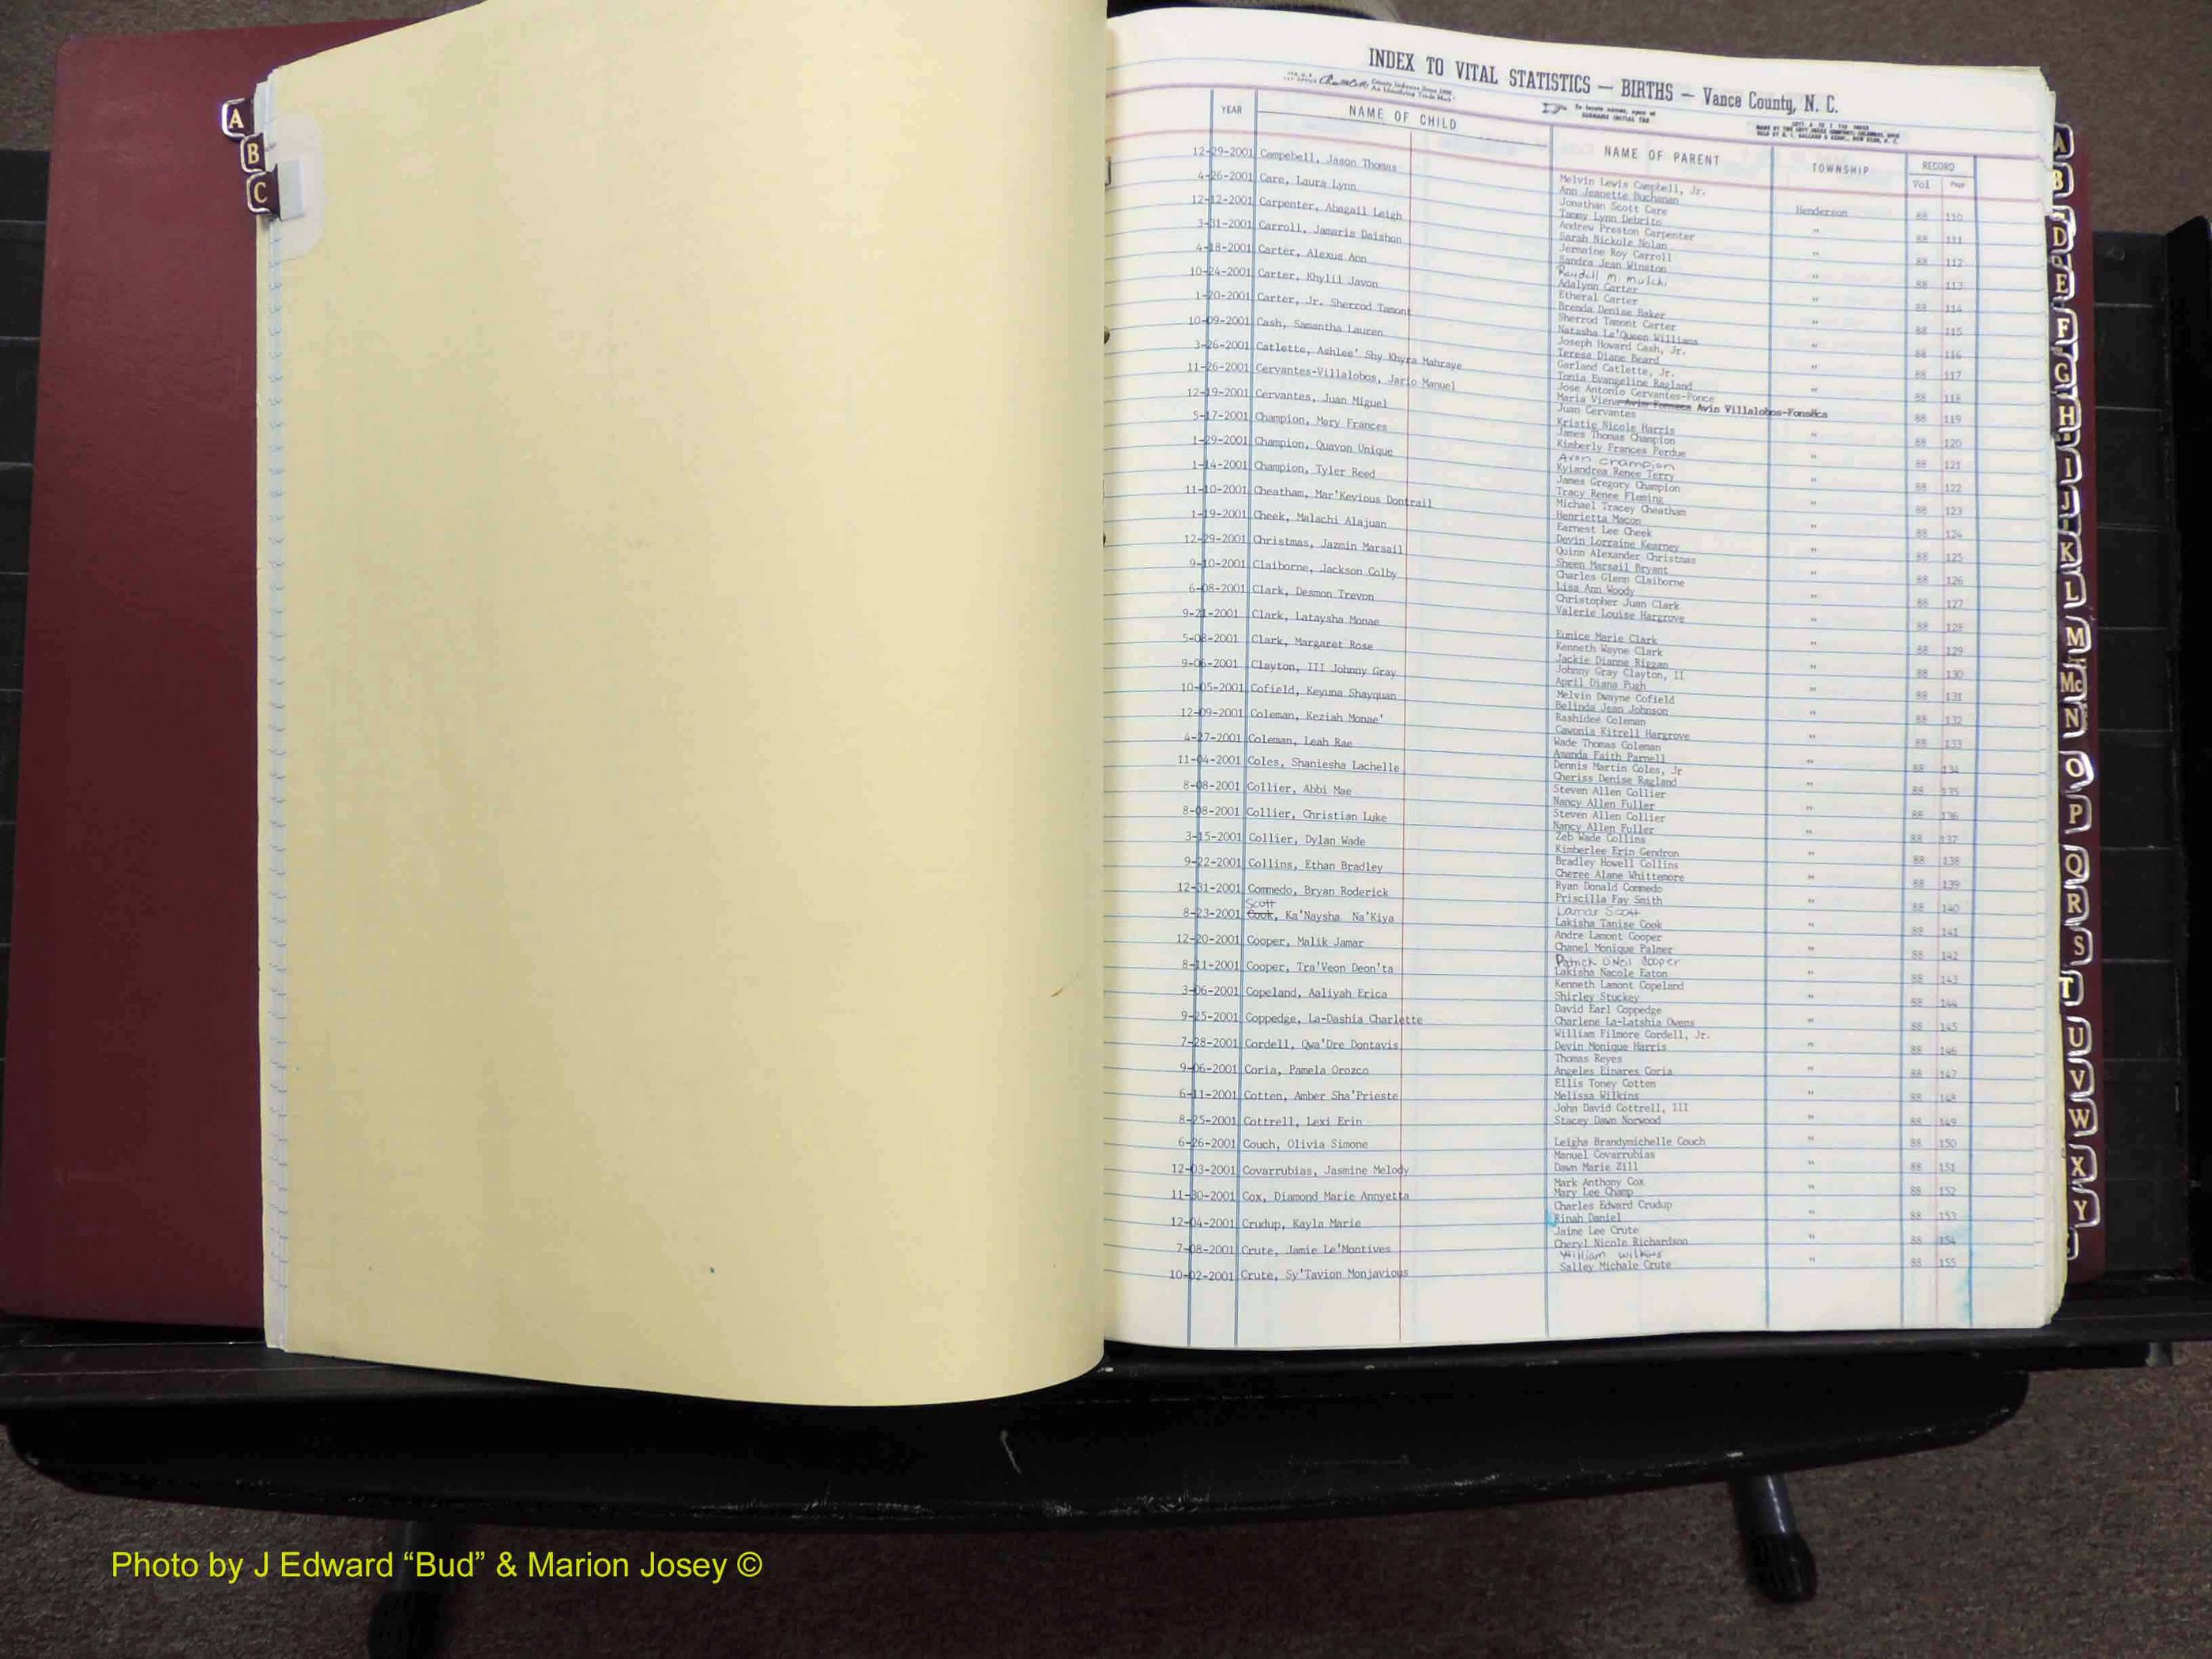 INDEX TO VITAL STATISTICS — BIRTHS — Vance County, N. C.
YEAR NAME OF CHILD NAME OF PARENT TOWNSHIP RECORD
Vol Page
12-29-2001 Campebell, Jason Thomas Melvin Lewis Campbell, Jr. Henderson 88 110
Ann Jeanette Buchanan
4-26-2001 Care, Laura Lynn Jonathan Scott Care " 88 111
Tammy Lynn Debrito
12-12-2001 Carpenter, Abagail Leigh Andrew Preston Carpenter " 88 112
Sarah Nickole Nolan
3-31-2001 Carroll, Jamaris Daishon Jermaine Roy Carroll " 88 113
Sandra Jean Winston
4-18-2001 Carter, Alexus Ann Randall M. " 88 114
Adalynn Carter
10-24-2001 Carter, Khylil Javon Etheral Carter " 88 115
Brenda Denise Baker
1-20-2001 Carter, Jr. Sherrod Tamont Sherrod Tamont Carter " 88 116
Natasha La'Queen Williams
10-09-2001 Cash, Samantha Lauren Joseph Howard Cash, Jr. " 88 117
Teresa Diane Beard
3-26-2001 Catlette, Ashlee' Shy Khyra Mahraye Garland Catlette, Jr. " 88 118
Tonia Evangeline Ragland
11-26-2001 Cervantes-Villalobos, Jario Manuel Jose Antonio Cervantes-Ponce 88 119
Maria Viena Avin Fonseca Avin Villalobos-Fonseca
12-19-2001 Cervantes, Juan Miguel Juan Cervantes " 88 120
Kristie Nicole Harris
5-17-2001 Champion, Mary Frances James Thomas Champion " 88 121
Kimberly Frances Perdue
1-29-2001 Champion, Quavon Unique Avon Champion " 88 122
Kyiandrea Renee Terry
1-14-2001 Champion, Tyler Reed James Gregory Champion " 88 123
Tracy Renee Fleming
11-10-2001 Cheatham, Mar'Kevious Dontrail Michael Tracey Cheatham " 88 124
Henrietta Macon
1-19-2001 Cheek, Malachi Alajuan Earnest Lee Cheek " 88 125
Devin Lorraine Kearney
12-29-2001 Christmas, Jazmin Marsail Quinn Alexander Christmas " 88 126
Sheen Marsail Bryant
9-10-2001 Claiborne, Jackson Colby Charles Glenn Claiborne " 88 127
Lisa Ann Woody
6-08-2001 Clark, Desmon Trevon Christopher Juan Clark " 88 128
Valerie Louise Hargrove
9-21-2001 Clark, Lataysha Monae Eunice Marie Clark " 88 129
5-08-2001 Clark, Margaret Rose Kenneth Wayne Clark " 88 130
Jackie Dianne Riggan
9-06-2001 Clayton, III Johnny Gray Johnny Gray Clayton, II " 88 131
April Diana Pugh
10-05-2001 Cofield, Keyuna Shayquan Melvin Dwayne Cofield " 88 132
Belinda Jean Johnson
12-09-2001 Coleman, Keziah Monae' Rashidee Coleman " 88 133
Cawonia Kitrell Hargrove
4-27-2001 Coleman, Leah Rae Wade Thomas Coleman " 88 134
Amanda Faith Parnell
11-04-2001 Coles, Shaniesha Lachelle Dennis Martin Coles, Jr " 88 135
Cheriss Denise Ragland
8-08-2001 Collier, Abbi Mae Steven Allen Collier " 88 136
Nancy Allen Fuller
8-08-2001 Collier, Christian Luke Steven Allen Collier " 88 137
Nancy Allen Fuller
3-15-2001 Collier, Dylan Wade Zeb Wade Collins " 88 138
Kimberlee Erin Gendron
9-22-2001 Collins, Ethan Bradley Bradley Howell Collins " 88 139
Cheree Alane Whittemore
12-31-2001 Commedo, Bryan Roderick Ryan Donald Commedo " 88 140
Priscilla Fay Smith
Scott
8-23-2001 Cook, Ka'Naysha Na'Kiya Lamar Scott " 88 141
Lakisha Tanise Cook
12-20-2001 Cooper, Malik Jamar Andre Lamont Cooper " 88 142
Chanel Monique Palmer
8-11-2001 Cooper, Tra'Veon Deon'ta Patrick O'Neil Cooper " 88 143
Lakisha Nacole Eaton
3-06-2001 Copeland, Aaliyah Erica Kenneth Lamont Copeland " 88 144
Shirley Stuckey
9-25-2001 Coppedge, La-Dashia Charlette David Earl Coppedge " 88 145
Charlene La-Latshia Owens
7-28-2001 Cordell, Qwa'Dre Dontavis William Filmore Cordell, Jr. " 88 146
Devin Monique Harris
9-06-2001 Coria, Pamela Orozco Thomas Reyes " 88 147
Angeles Einares Coria
6-11-2001 Cotten, Amber Sha'Prieste Ellis Toney Cotten " 88 148
Melissa Wilkins
8-25-2001 Cottrell, Lexi Erin John David Cottrell, III " 88 149
Stacey Dawn Norwood
6-26-2001 Couch, Olivia Simone Leigha Brandymichelle Couch " 88 150
12-03-2001 Covarrubias, Jasmine Melody Manuel Covarrubias " 88 151
Dawn Marie Zill
11-30-2001 Cox, Diamond Marie Annyetta Mark Anthony Cox " 88 152
Mary Lee Champ
12-04-2001 Crudup, Kayla Marie Charles Edward Crudup " 88 153
Rinah Daniel
7-08-2001 Crute, Jamie Le'Montives Jaime Lee Crute " 88 154
Cheryl Nicole Richardson
10-02-2001 Crute, Sy'Tavion Monjavious William Wilkins " 88 155
Salley Michale Crute
A
B
C
A
B
D
E
F
G
H
I
J
K
L
M
Mc
N
O
P
Q
R
S
T
U
V
W
X
Y
Photo by J Edward “Bud” & Marion Josey ©